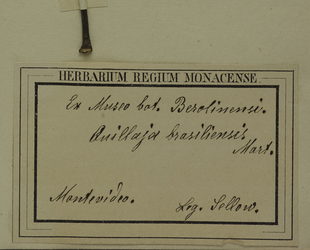 HERBARIUM REGIUM MONACENSE
Ex Museo bot. Berolinensi.
Quillaja brasiliensis.
Mart.
Montevideo. Leg. Sellow.